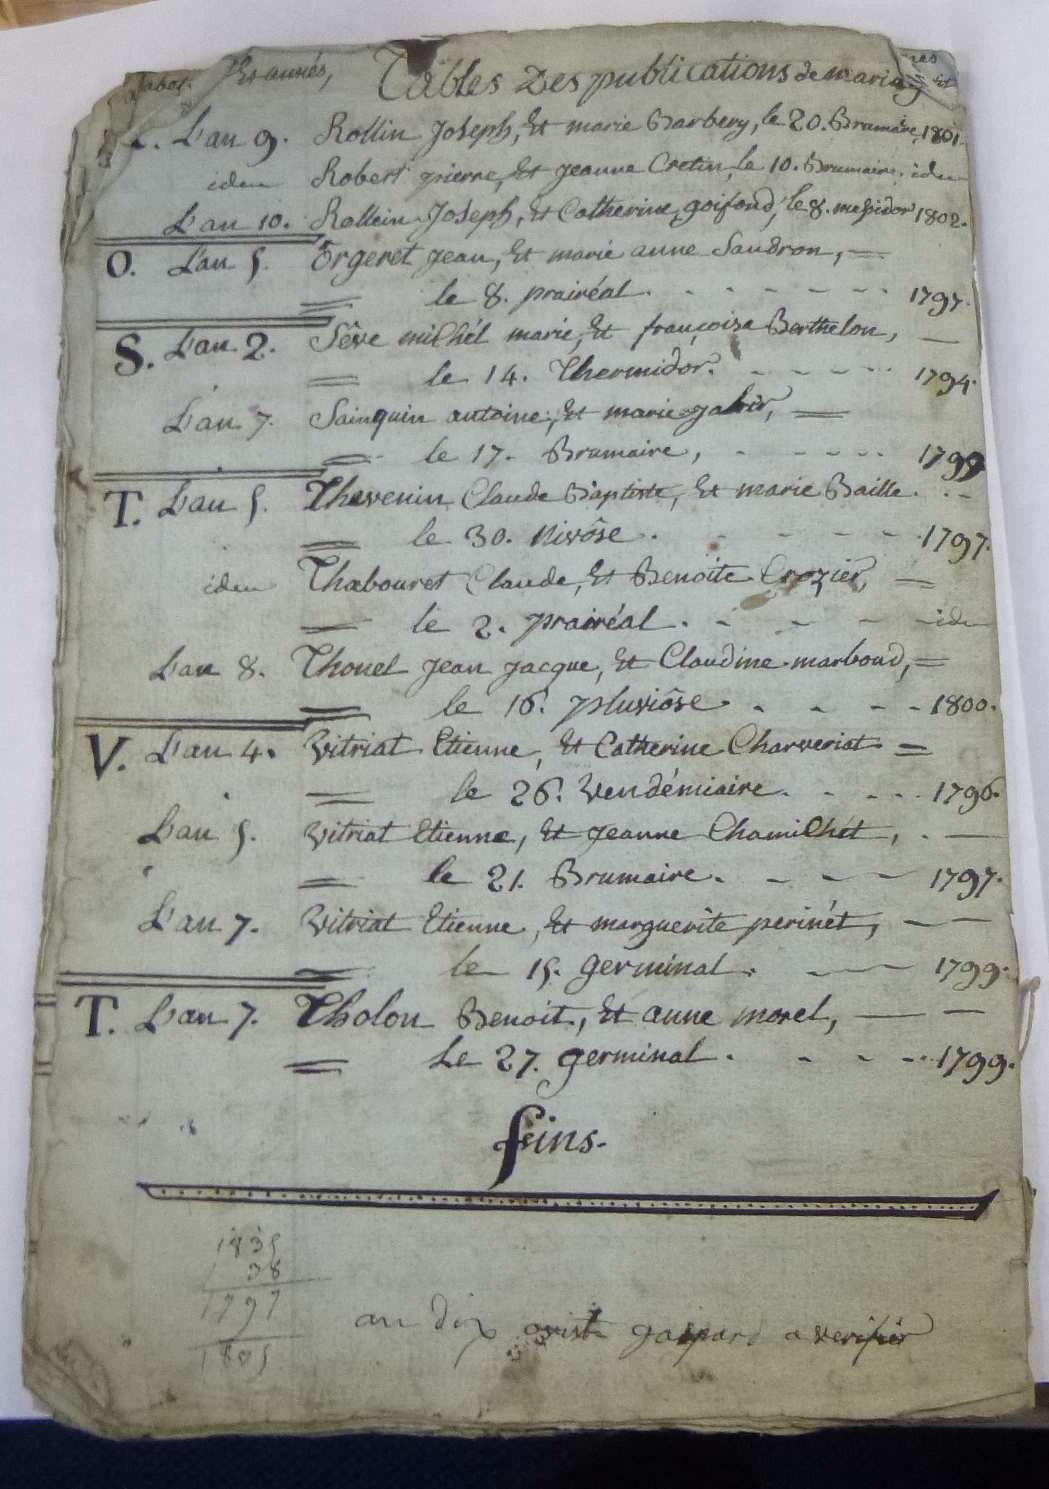 Tables Des publications de mariag
L'an 9. Rollin Joseph, Et marie Barbery, le 20. Brumaire, 1801.
idem Robert pierre, Et Jeanne Cretin, le 10. Brumaire. idem
L'an 10. Rollein Joseph, Et Catherine goifond, le 8. messidor 1802.
O. L'an 5. Orgeret Jean, Et marie anne Saudron, =
= le 8. prairéal. - - - - - - 1797.
S. L'an 2. Sêve michél marie, Et françoise Berthelon, —
= le 14. Thermidor. - - - - - 1794.
L'an 7. Sainquin antoine, Et marie =
= le 17. Brumaire, - - - - - 1799
T. L'an 5. Thevenin Claude Baptiste, Et marie Baille. - -
= le 30. Nivôse. - - - - - 1797.
idem Thabouret Claude, Et Benoite Crozier, =
= le 2. prairéal. - - - - - idem
L'an 8. Thouel Jean Jacque, Et Claudine marboud, =
= le 16. pluviôse. - - - - 1800.
V. L'an 4. Vitriat Etienne, Et Catherine Charveriat =
= le 26. Vendémiaire. - - - - 1796.
L'an 5. Vitriat Etienne, Et Jeanne Chamichét, - —
= le 21. Brumaire. - - - — 1797.
L'an 7. Vitriat Etienne, Et marguerite perinét, — —
= le 15. germinal. - — 1799.
T. L'an 7. Tholon Benoit, Et anne morel, — —
= Le 27. germinal. - - - - 1799.
feins.
1835
38
1797
1805
an dix gaspard a verifier